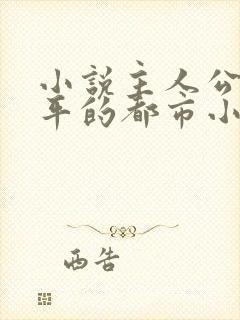 小说主人公
年的都市小
西告